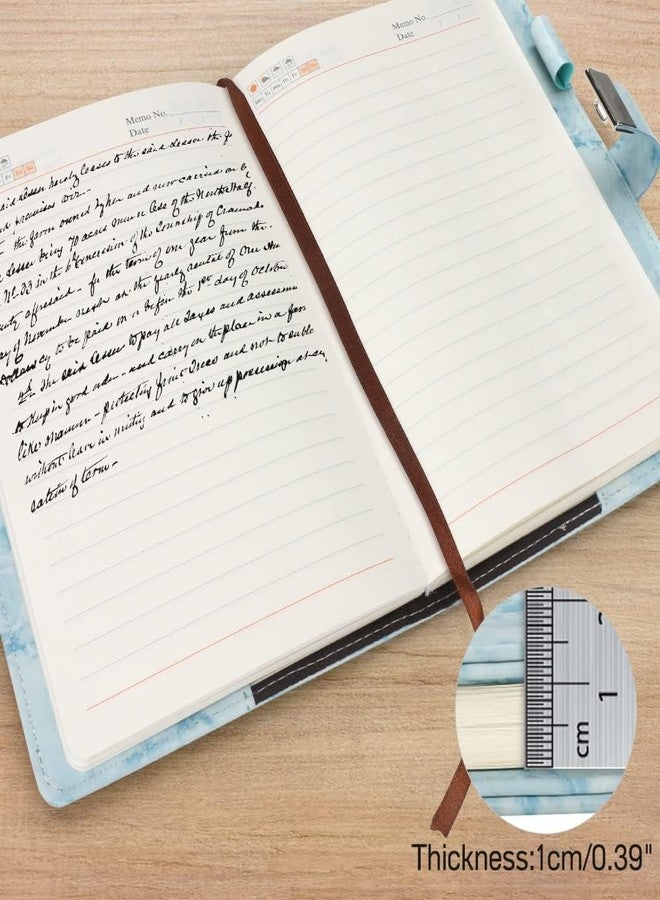 Memo No.
Date
Mo Tu We Th Fr Sa Su
Memo No.
Date
Fr Sa Su
said Lesser hereby leases to the said Lessee the
premises viz.-
the farm owned by her and now carried on
Lessee being 70 acres more or less of the North half
No. 23 in the 6th Concession of the Township of Cramahe
aforesaid - for the term of one year from the
of November next at the yearly rental of One
to be paid on or before the 1st day of October
The said Lessee to pay all taxes and
to keep in good order - and carry on the place in a
like manner - protecting fruit trees and not to
without leave in writing and to give up possession at
of term -
1
cm
Thickness:1cm/0.39"